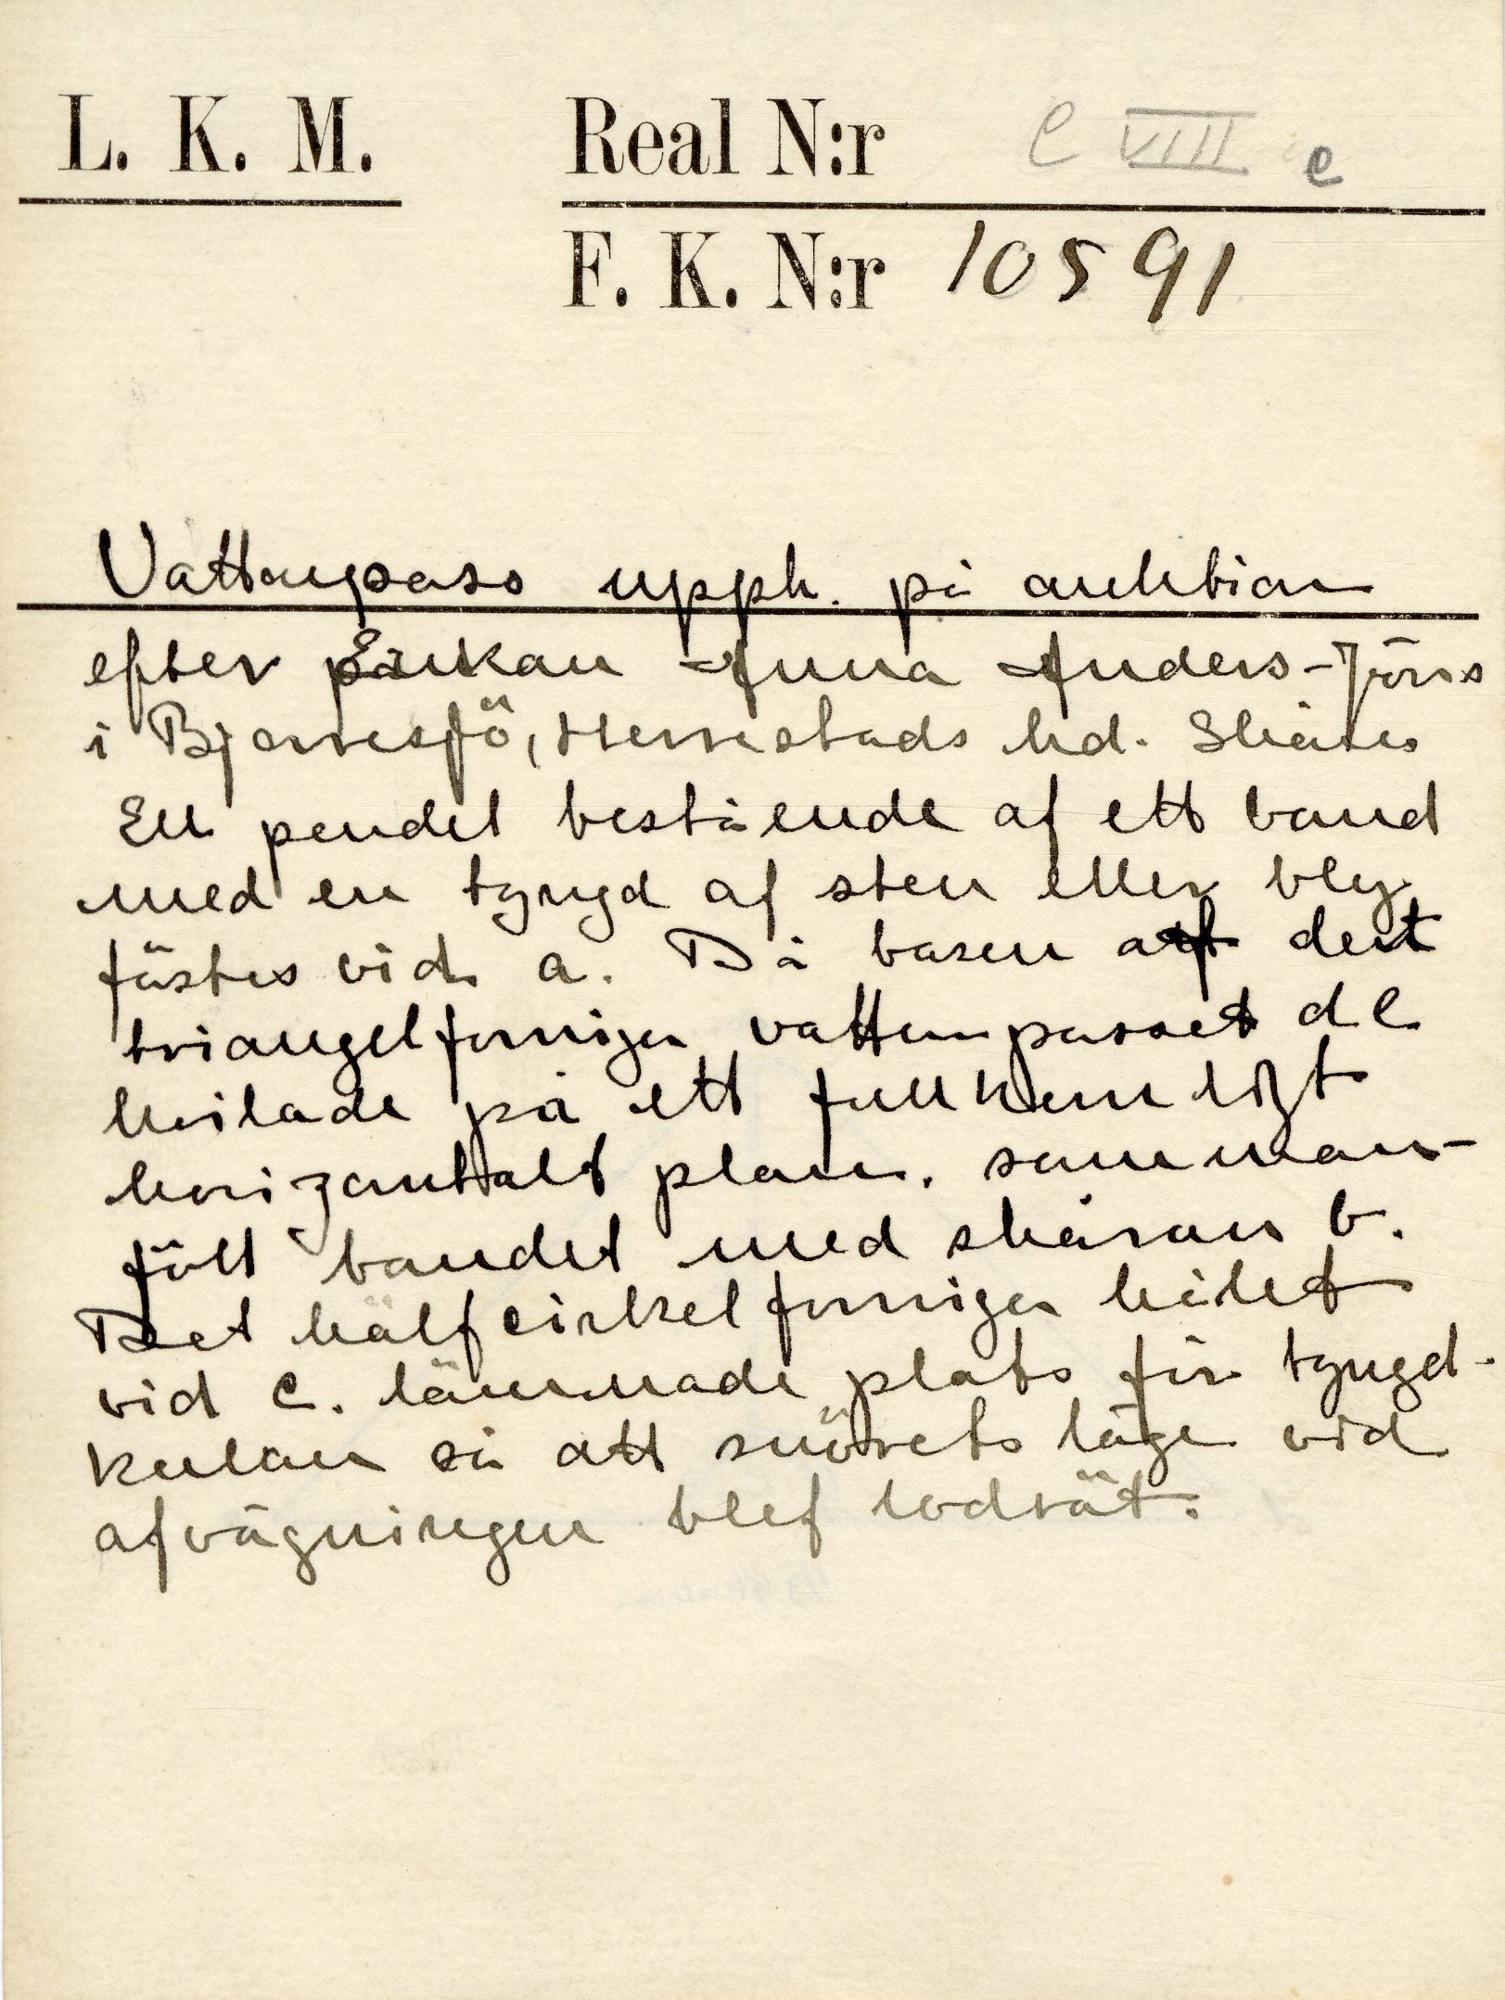 L. K. M. Real N:r C VIII e
F. K. N:r 10591
Vattenpass upph. på auktion
efter Enkan Anna Anders-Jöns
i Bjerresjö, Herrestads hd. Skåne
En pendel bestående af ett band
med en tyngd af sten eller bly
fästes vid a. Då basen af det
triangelformiga vattenpasset d e
hvilade på ett fullkomligt
horizontalt plan. samman-
föll bandet med skåran b.
Det hálfcirkelformiga hålet
vid c. lämnade plats för tyngd-
kulan så att snörets läge vid
afvägningen blef lodrät.